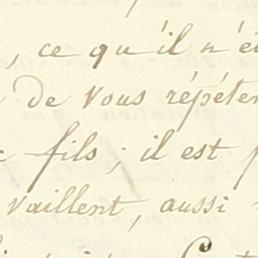 , ce qu'il n'ét
de vous répéter
fils; il est p
vaillent, aussi